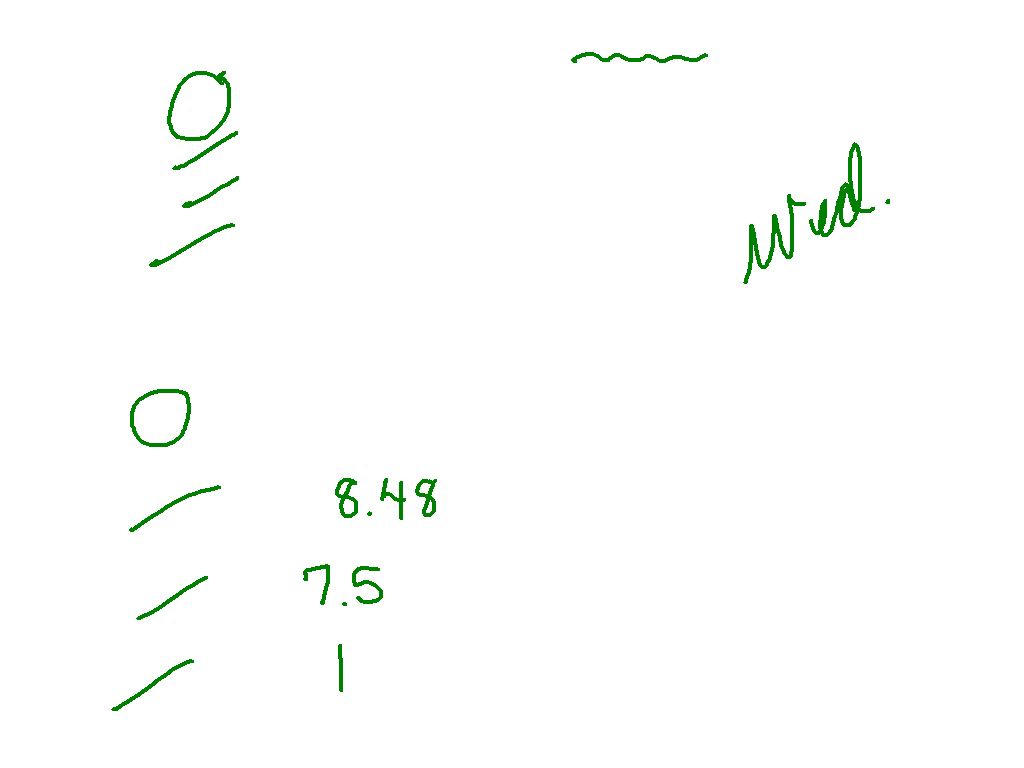 Wed.
8.48
7.5
1